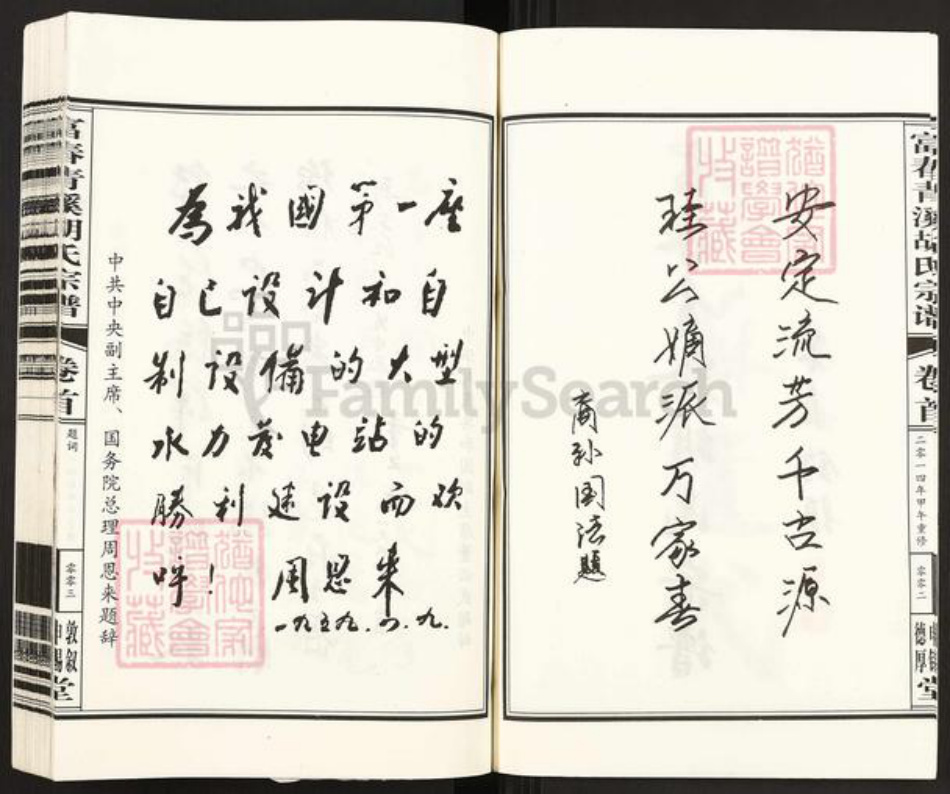 富春青溪胡氏宗谱
卷首
二零一四年甲午重修
零零二
安定流芳千古源
珪公嫡派万家春
裔孙国法题
為我國第一座
自己設计和自
制設備的大型
水力发电站的
勝利建设而欢
呼! 周恩来
一九五九.四.九.
中共中央副主席、国务院总理周恩来题辞
富春青溪胡氏宗谱
卷首
题词
零零三
敦叙
堂
FamilySearch